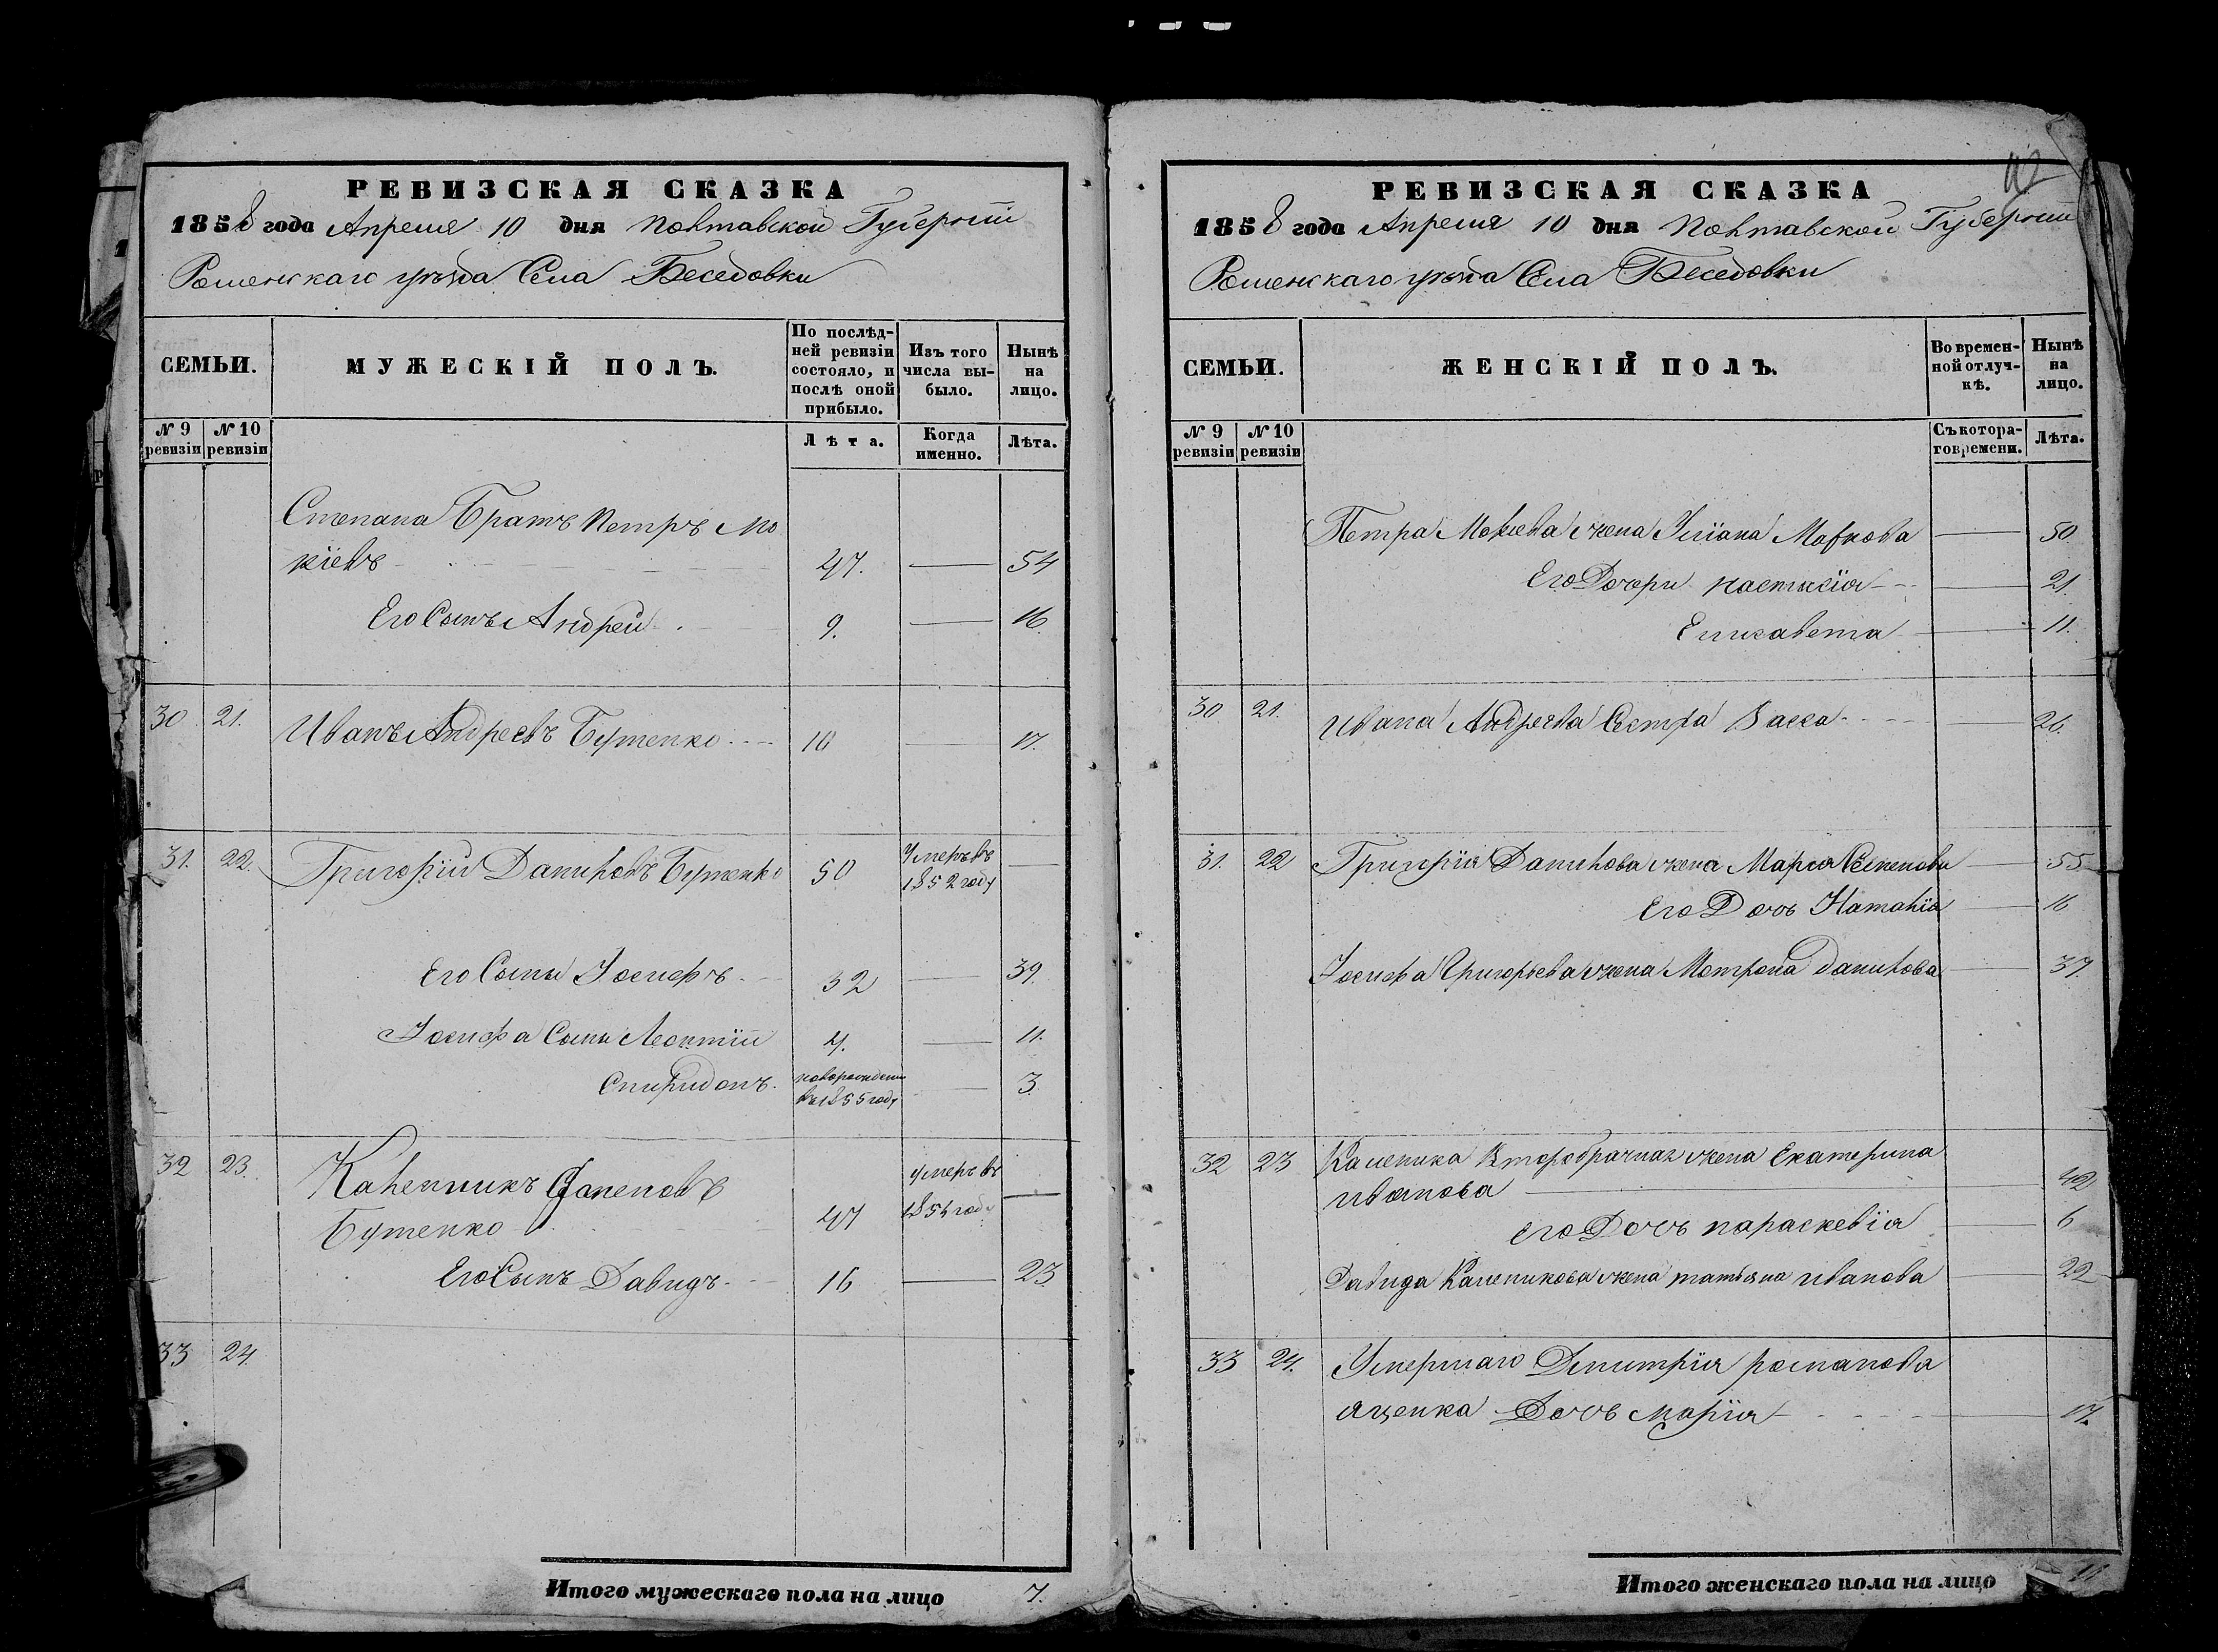 РЕВИЗСКАЯ СКАЗКА
1858 года Апреля 10 дня Полтавской Губерніи
Роменскаго уезда Села Беседовки
СЕМЬИ.
МУЖЕСКІЙ ПОЛЪ.
По послѣд-
ней ревизіи
состояло, и
послѣ оной
прибыло.
Изъ того
числа вы-
было.
Нынѣ
на
лицо.
№ 9
ревизіи
№ 10
ревизіи
Лѣта.
Когда
именно.
Лѣта.
Степана Братъ Петръ Мо
кіевъ 47. 54
Его Сынъ Андрей 9. 16.
30 21. Иванъ Андреевъ Бутенко 10 17.
31. 22. Григорій Даниловъ Бутенко 50 Умеръ въ
1852 году
Его Сыны Іосифъ 32 39.
Іосифа Сыны Леонтій 4. 11.
Спиридонъ. новорожденъ
въ 1855 году 3.
32 23. Каленникъ
Бутенко 47 умеръ въ
году
Его Сынъ Давидъ 16 23
33 24.
Итого мужескаго пола на лицо 7.
РЕВИЗСКАЯ СКАЗКА
1858 года Апреля 10 дня Полтавской Губерніи
Роменскаго уезда Села Беседовки
СЕМЬИ.
ЖЕНСКІЙ ПОЛЪ.
Во времен-
ной отлуч-
кѣ.
Нынѣ
на
лицо.
№ 9
ревизіи
№ 10
ревизіи
Съ котора-
го времени.
Лѣта.
Петра Мокіева жена Уліана Маркова 50.
Его Дочери настасія 21.
Елисавета 11.
30 21. Ивана Андреева Сестра Васса 26.
31. 22 Григорія Данилова жена Марія Семенова 55
Его Дочь Наталія 16
Іосифа Григорьева жена Матрона Данилова 37.
32 23 Каленика Второбрачная жена Екатерина
Иванова 42
его Дочь параскевія 6
Давида Каленикова жена татьяна иванова 22
33 24. Умершаго Дмитрія романова
яценка Дочь марія 17.
Итого женскаго пола на лицо 11